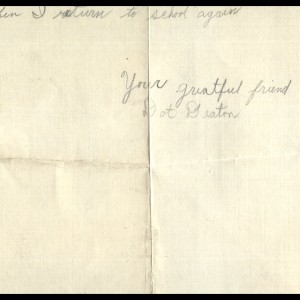 I return to school again
Your greatful friend
Dot Deaton